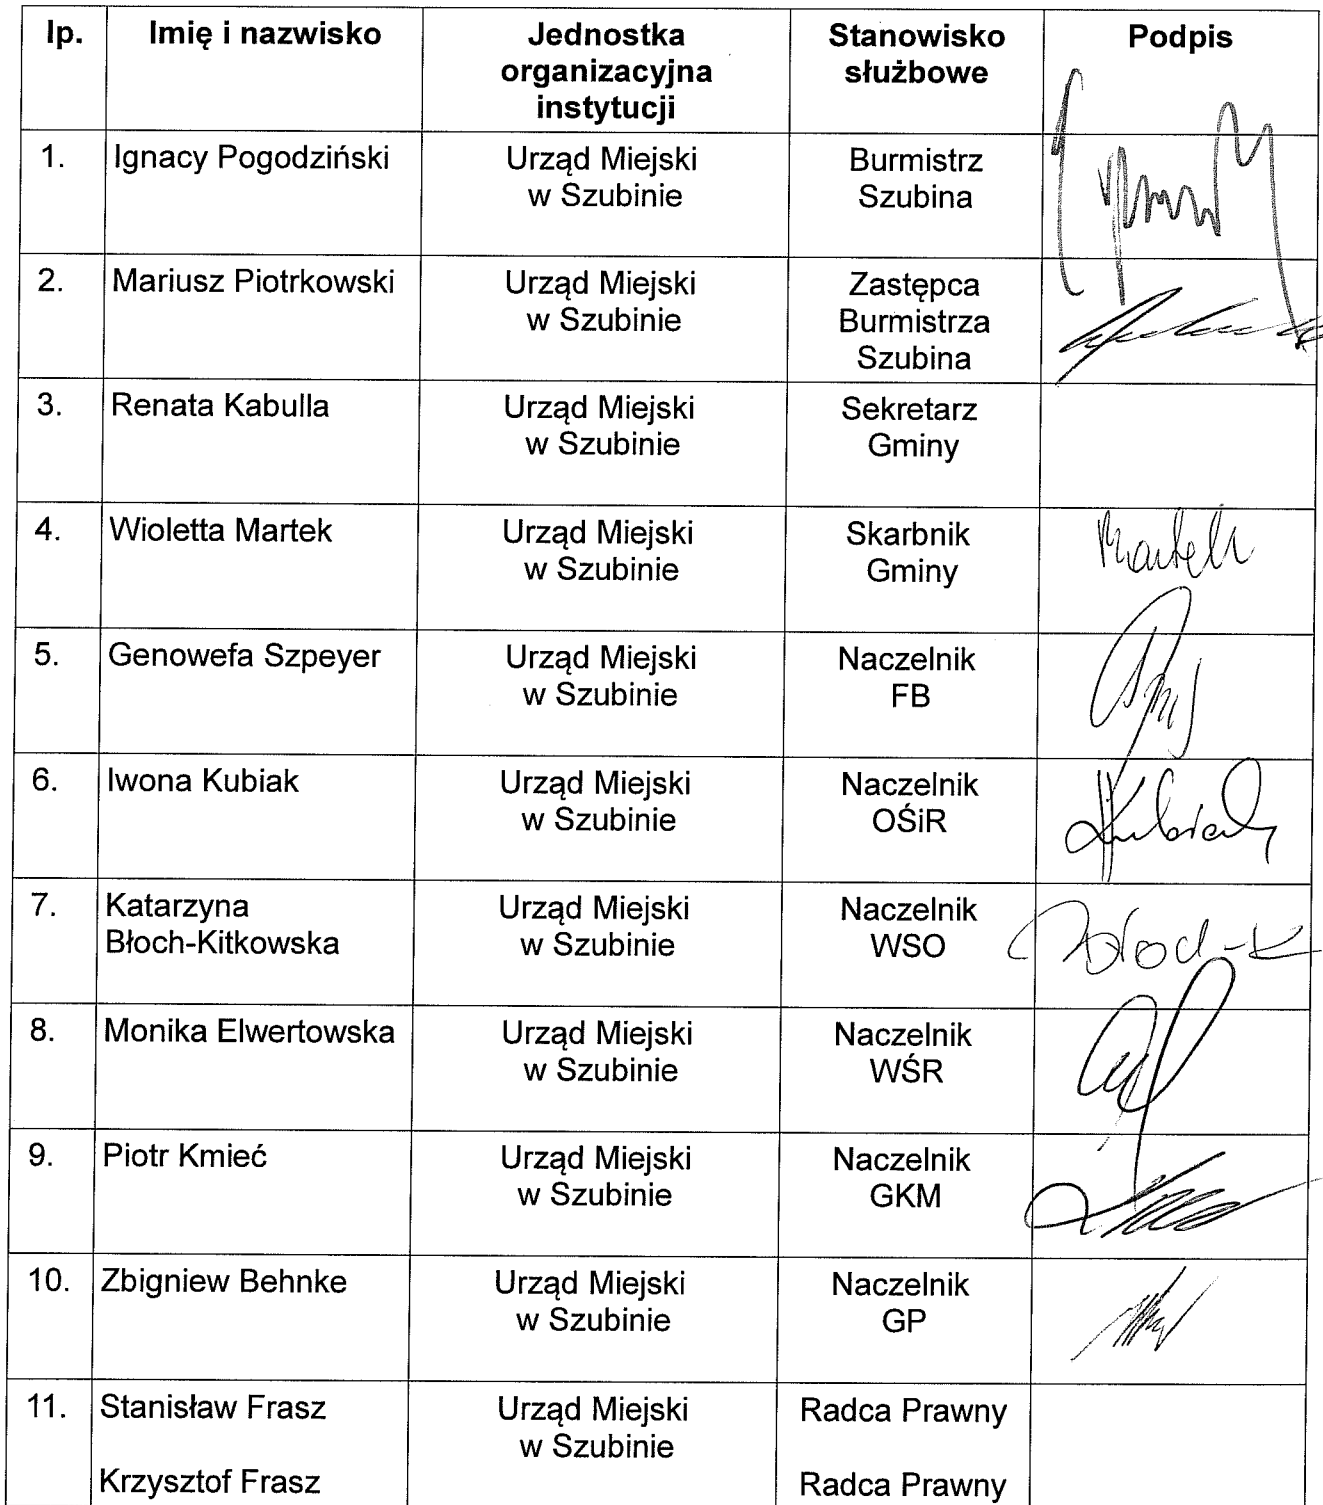 lp.
Imię i nazwisko
Jednostka
organizacyjna
instytucji
Stanowisko
służbowe
Podpis
1.
Ignacy Pogodziński
Urząd Miejski
w Szubinie
Burmistrz
Szubina
2.
Mariusz Piotrkowski
Urząd Miejski
w Szubinie
Zastępca
Burmistrza
Szubina
3.
Renata Kabulla
Urząd Miejski
w Szubinie
Sekretarz
Gminy
4.
Wioletta Martek
Urząd Miejski
w Szubinie
Skarbnik
Gminy
Martek
5.
Genowefa Szpeyer
Urząd Miejski
w Szubinie
Naczelnik
FB
6.
Iwona Kubiak
Urząd Miejski
w Szubinie
Naczelnik
OŚiR
Kubiak
7.
Katarzyna
Błoch-Kitkowska
Urząd Miejski
w Szubinie
Naczelnik
WSO
Błoch-K
8.
Monika Elwertowska
Urząd Miejski
w Szubinie
Naczelnik
WŚR
9.
Piotr Kmieć
Urząd Miejski
w Szubinie
Naczelnik
GKM
10.
Zbigniew Behnke
Urząd Miejski
w Szubinie
Naczelnik
GP
11.
Stanisław Frasz
Krzysztof Frasz
Urząd Miejski
w Szubinie
Radca Prawny
Radca Prawny